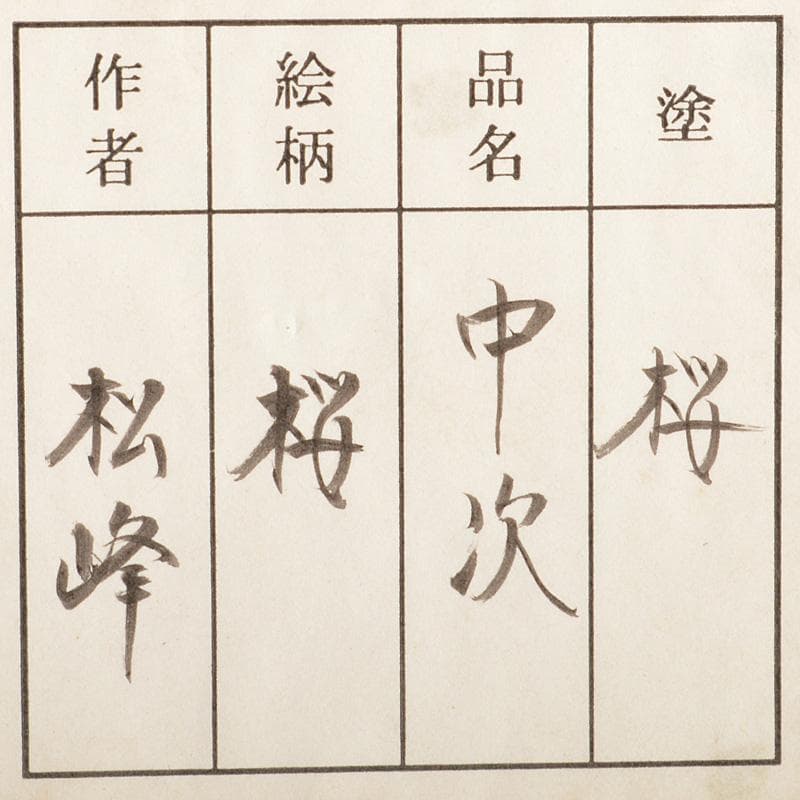 塗
桜
品名
中次
絵柄
桜
作者
松峰